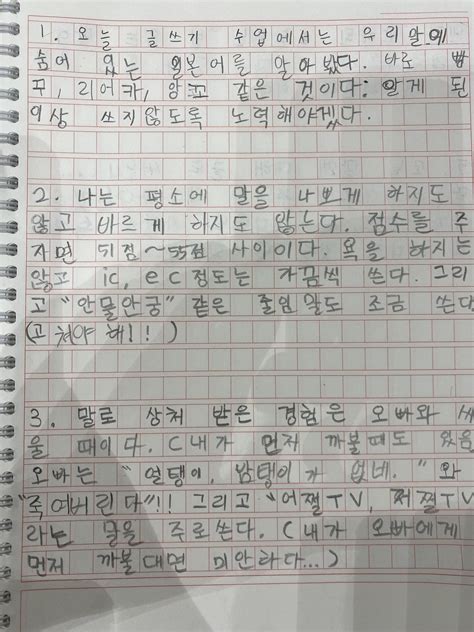 1. 오늘 글쓰기 수업에서는 우리말에
숨어 있는 일본어를 알아봤다. 바로 빠
꾸, 리어카, 앙꼬 같은 것이다. 알게 된
이상 쓰지않도록 노력해야겠다.
2. 나는 평소에 말을 나쁘게 하지도
않고 바르게 하지도 않는다. 점수를 주
자면 51점~55점 사이이다. 욕을 하지는
않고 ic, ec정도는 가끔씩 쓴다. 그리
고 "안물안궁" 같은 줄임말도 조금 쓴다
(고쳐야 해!!)
3. 말로 상처 받은 경험은 오빠와 싸
울 때이다. (내가 먼저 까불때도 있음
오빠는 "열탱이, 밤탱이가 없네." 와
"죽여버린다"!! 그리고 "어쩔TV, 저쩔TV
라는 말을 주로쓴다. (내가 오빠에게
먼저 까불대면 미안하다...)